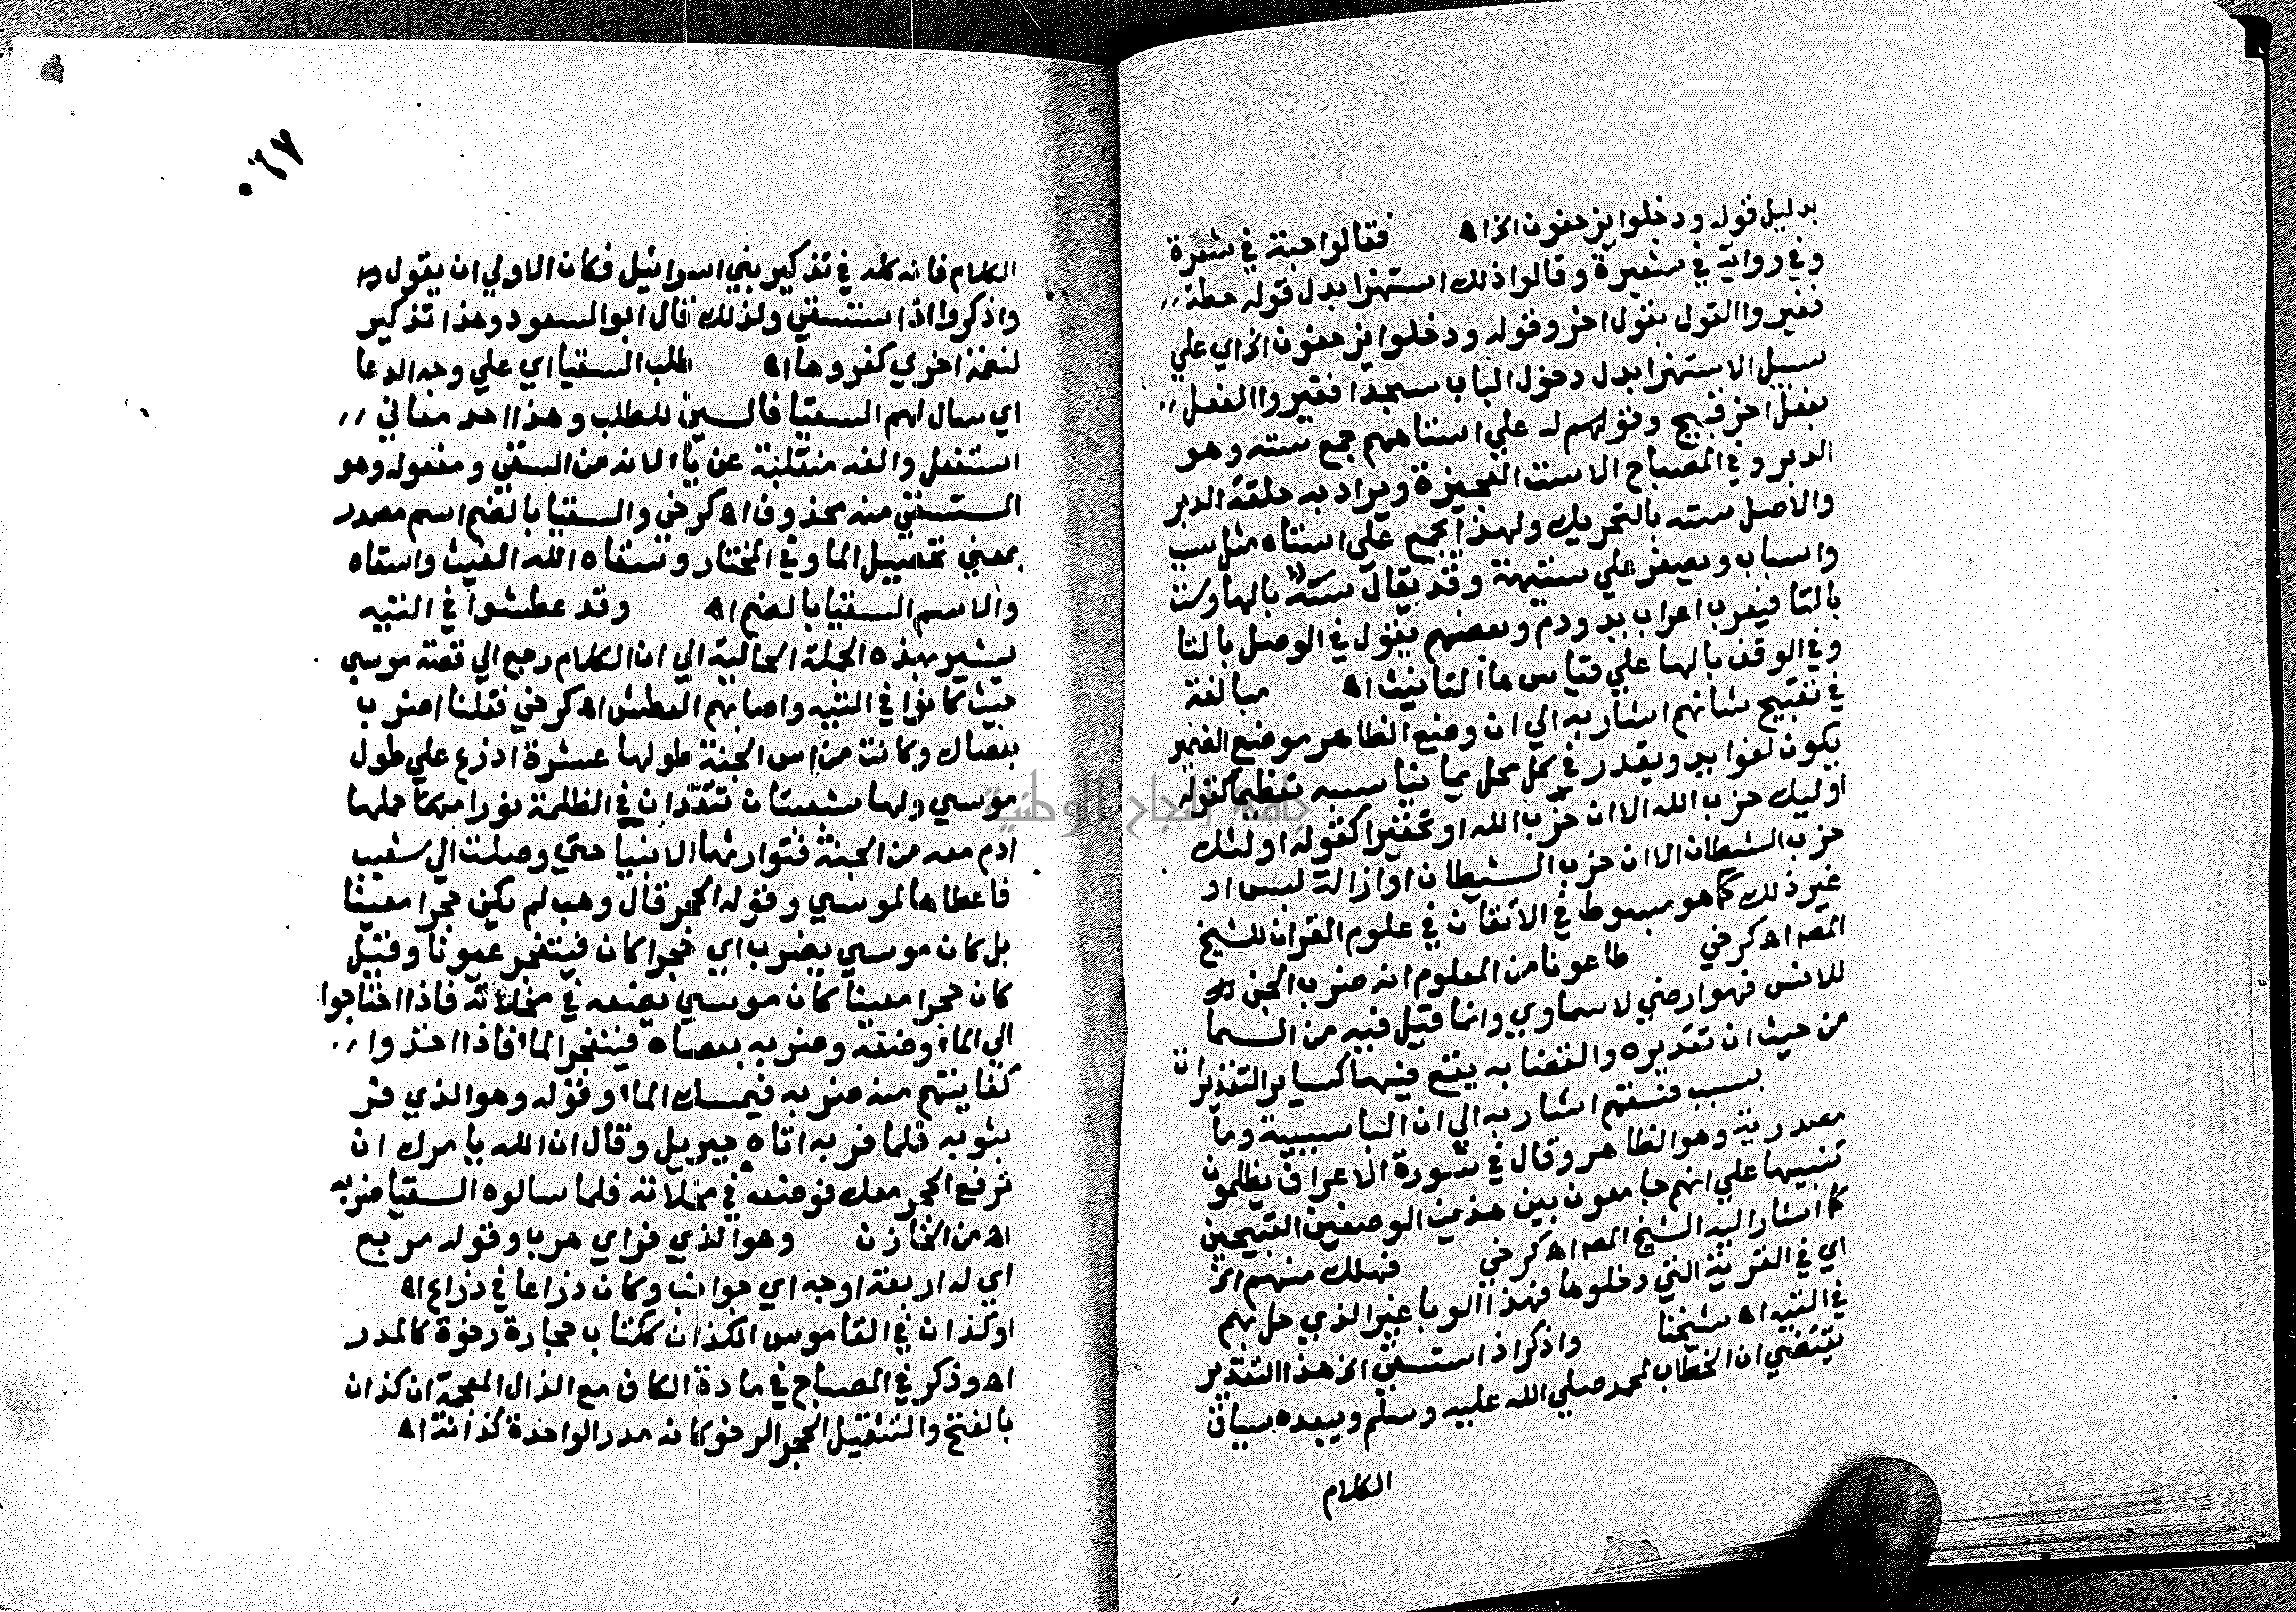 بدليل قوله ودخلوا يزحفون الخ اه فقالوا حبة في شعرة
وفي رواية في شعيرة وقالوا ذلك استهزا بدل قوله حطة
فغيروا القول بقول اخر وقوله ودخلوا يزحفون الخ اي علي
سبيل الاستهزا بدل دخول الباب سجدا فغيروا الفعل
بفعل اخر قبيح وقولهم له علي استاههم جمع سته وهو
الدبر وفي المصباح الاست العجيزة ويراد به حلقة الدبر
والاصل سته بالتحريك ولهذا يجمع علي استاه مثل سبب
واسباب ويصغر علي ستيهة وقد يقال سته بالها وست
بالتا فيعرب اعراب يد ودم وبعضهم يقول في الوصل بالتا
وفي الوقف بالها علي قياس ها التانيث اه مبالغة
في تقبيح شانهم اشار به الي ان وضع الظاهر موضع الضمير
يكون لفوايد ويقدر في كل محل بما يناسبه تعظيما كقوله
اوليك حزب الله الا ان حزب الله او تحقيرا كقوله اولئك
حزب الشيطان الا ان حزب الشيطان او ازالة لبس او
غير ذلك كما هو مبسوط في الاتقان في علوم القران للشيخ
المصه اه كرخي طاعونا من المعلوم انه ضرب الجن
للانس فهو ارضي لا سماوي وانما قيل فيه من السما
من حيث ان تقديره والقضا به يقع فيها كساير التقديرات
بسبب فسقهم اشار به الي ان البا سببية وما
مصدرية وهو الظاهر وقال في سورة الاعراف يظلمون
تنبيها علي انهم جامعون بين هذين الوصفين القبيحين
كما اشار اليه الشيخ المصه اه كرخي فهلك منهم الخ
اي في القرية التي دخلوها فهذا الوبا غير الذي حل بهم
في التيه اه شيخنا واذكر اذ استسقي الخ هذا التقدير
يقتضي ان الخطاب لمحمد صلي الله عليه وسلم ويبعده سياق
الكلام
٠٦٧
الكلام فانه كله في تذكير بني اسرائيل فكان الاولي ان يقول
واذكروا اذ استسقي ولذلك قال ابو السعود وهذا تذكير
لنعمة اخري كفروها اه طلب السقيا اي علي وجه الدعا
اي سال لهم السقيا فالسين للطلب وهذا احد معاني
استفعل والفه منقلبة عن ياء لانه من السقي ومفعوله وهو
المستسقي منه محذوف اه كرخي والسقيا بالضم اسم مصدر
بمعني تحصيل الما وفي المختار وسقاه الله الغيث واسقاه
والاسم السقيا بالضم اه وقد عطشوا في التيه
يشير بهذه الجملة الحالية الي ان الكلام رجع الي قصة موسي
حيث كانوا في التيه واصابهم العطش اه كرخي فقلنا اضرب
بعصاك وكانت من اس الجنة طولها عشرة اذرع علي طول
موسي ولها شعبتان تتقدان في الظلمة نورا حملها
ادم معه من الجنة فتوارثها الانبيا حتي وصلت الي شعيب
فاعطاها لموسي وقوله الحجر قال وهب لم يكن حجرا معينا
بل كان موسي يضرب اي حجرا كان فينفجر عيونا وقيل
كان حجرا معينا كان موسي يضعه في مخلاته فاذا احتاجوا
الي الماء وضعه وضربه بعصاه فينفجر الماء فاذا اخذوا
كفايتهم منه ضربه فيمسك الماء وقوله وهو الذي فر
بثوبه فلما فر به اتاه جبريل وقال ان الله يامرك ان
ترفع الحجر معك فوضعه في مخلاته فلما سالوه السقيا ضربه
اه من الخازن وهو الذي فر اي هربا وقوله مربع
اي له اربعة اوجه اي جوانب وكان ذراعا في ذراع اه
او كذان في القاموس الكذان ككتاب حجارة رخوة كالمدر
اه وذكر في المصباح في مادة الكاف مع الذال المعجمة ان كذان
بالفتح والتثقيل الحجر الرخو كانه مدر الواحدة كذانة اه
جامعة النجاح الوطنية